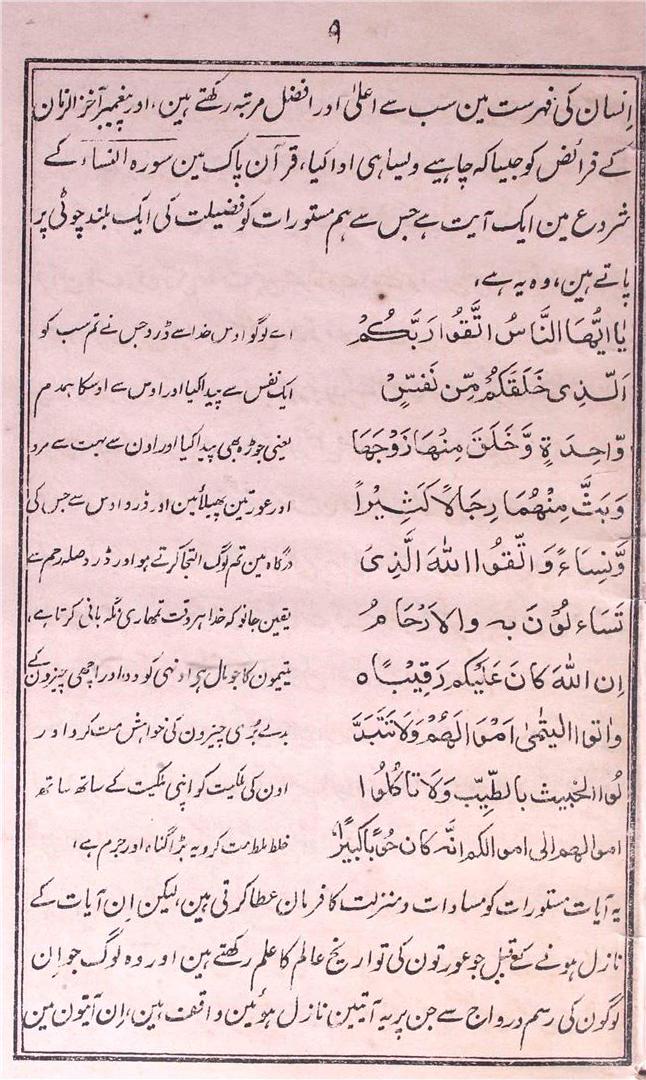 ۹
اِنسان کی فہرست مین سب سے اعلیٰ اور افضل مرتبہ رکھتے ہین، اور پیغمبر آخر الزمان
کے فرائض کو جیسا کہ چاہیے ویسا ہی ادا کیا، قرآن پاک مین سورہ النساء کے
شروع مین ایک آیت ہے جس سے ہم مستورات کو فضیلت کی ایک بلند چوٹی پر
پاتے ہین، وہ یہ ہے،
یٰا ایُّھَا النَّاسُ اتَّقُوا رَبَّکُمْ
الَّذِی خَلَقَکُمْ مِّن نَفسٍ
وَّاحِدَةٍ وَّخَلَقَ مِنْھَا زَوْجَھَا
وَبَثَّ مِنْھُمَا رِجَالاً کَثِیْراً
وَّنِسَاءً وَاتَّقُوا اللّٰہَ الَّذِیَ
تَسَاءلُوْنَ بہ والارْحَامُ
اِن اللّٰہَ کَانَ عَلَیْکم رَقِیْبًا ہ
واٰتوا الیتٰمٰی اَمْوَالَھُمْ وَلَا تَتَبَدَّ
لُوا الخبیث بالطَّیِّب وَلَا تاکُلُوا
اموالھم الی اموالکم انَّہ کان حُوْباً کَبِیْرًا
اے لوگو اوس خدا سے ڈرو جس نے تم سب کو
ایک نفس سے پیدا کیا اور اوس سے اوسکا ہمدم
یعنی جوڑہ بھی پیدا کیا اور اون سے بہت سے مرد
اور عورتین پھیلائین اور ڈرو اوس سے جس کی
درگاہ مین تم لوگ التجا کرتے ہو اور ڈرو صلہ رحم سے
یقین جانو کہ خدا ہر وقت تمھاری نگہبانی کرتا ہے،
یتیمون کا جو مال ہو اونہی کو دو، اور اچھی چیزون کے
بدلے بُری چیزون کی خواہش مت کرو اور
اون کی ملکیت کو اپنی ملکیت کے ساتھ ساتھ
خلط ملط مت کرو یہ بڑا گناہ اور جرم ہے،
یہ آیات مستورات کو مساوات و منزلت کا فرمان عطا کرتی ہین، لیکن اِن آیات کے
نازل ہونے کے قبل جو عورتون کی تواریخ عالم کا علم رکھتے ہین اور وہ لوگ جو اِن
لوگون کی رسم و رواج سے جن پر یہ آیتین نازل ہوئین واقف ہین، اِن آیتون مین